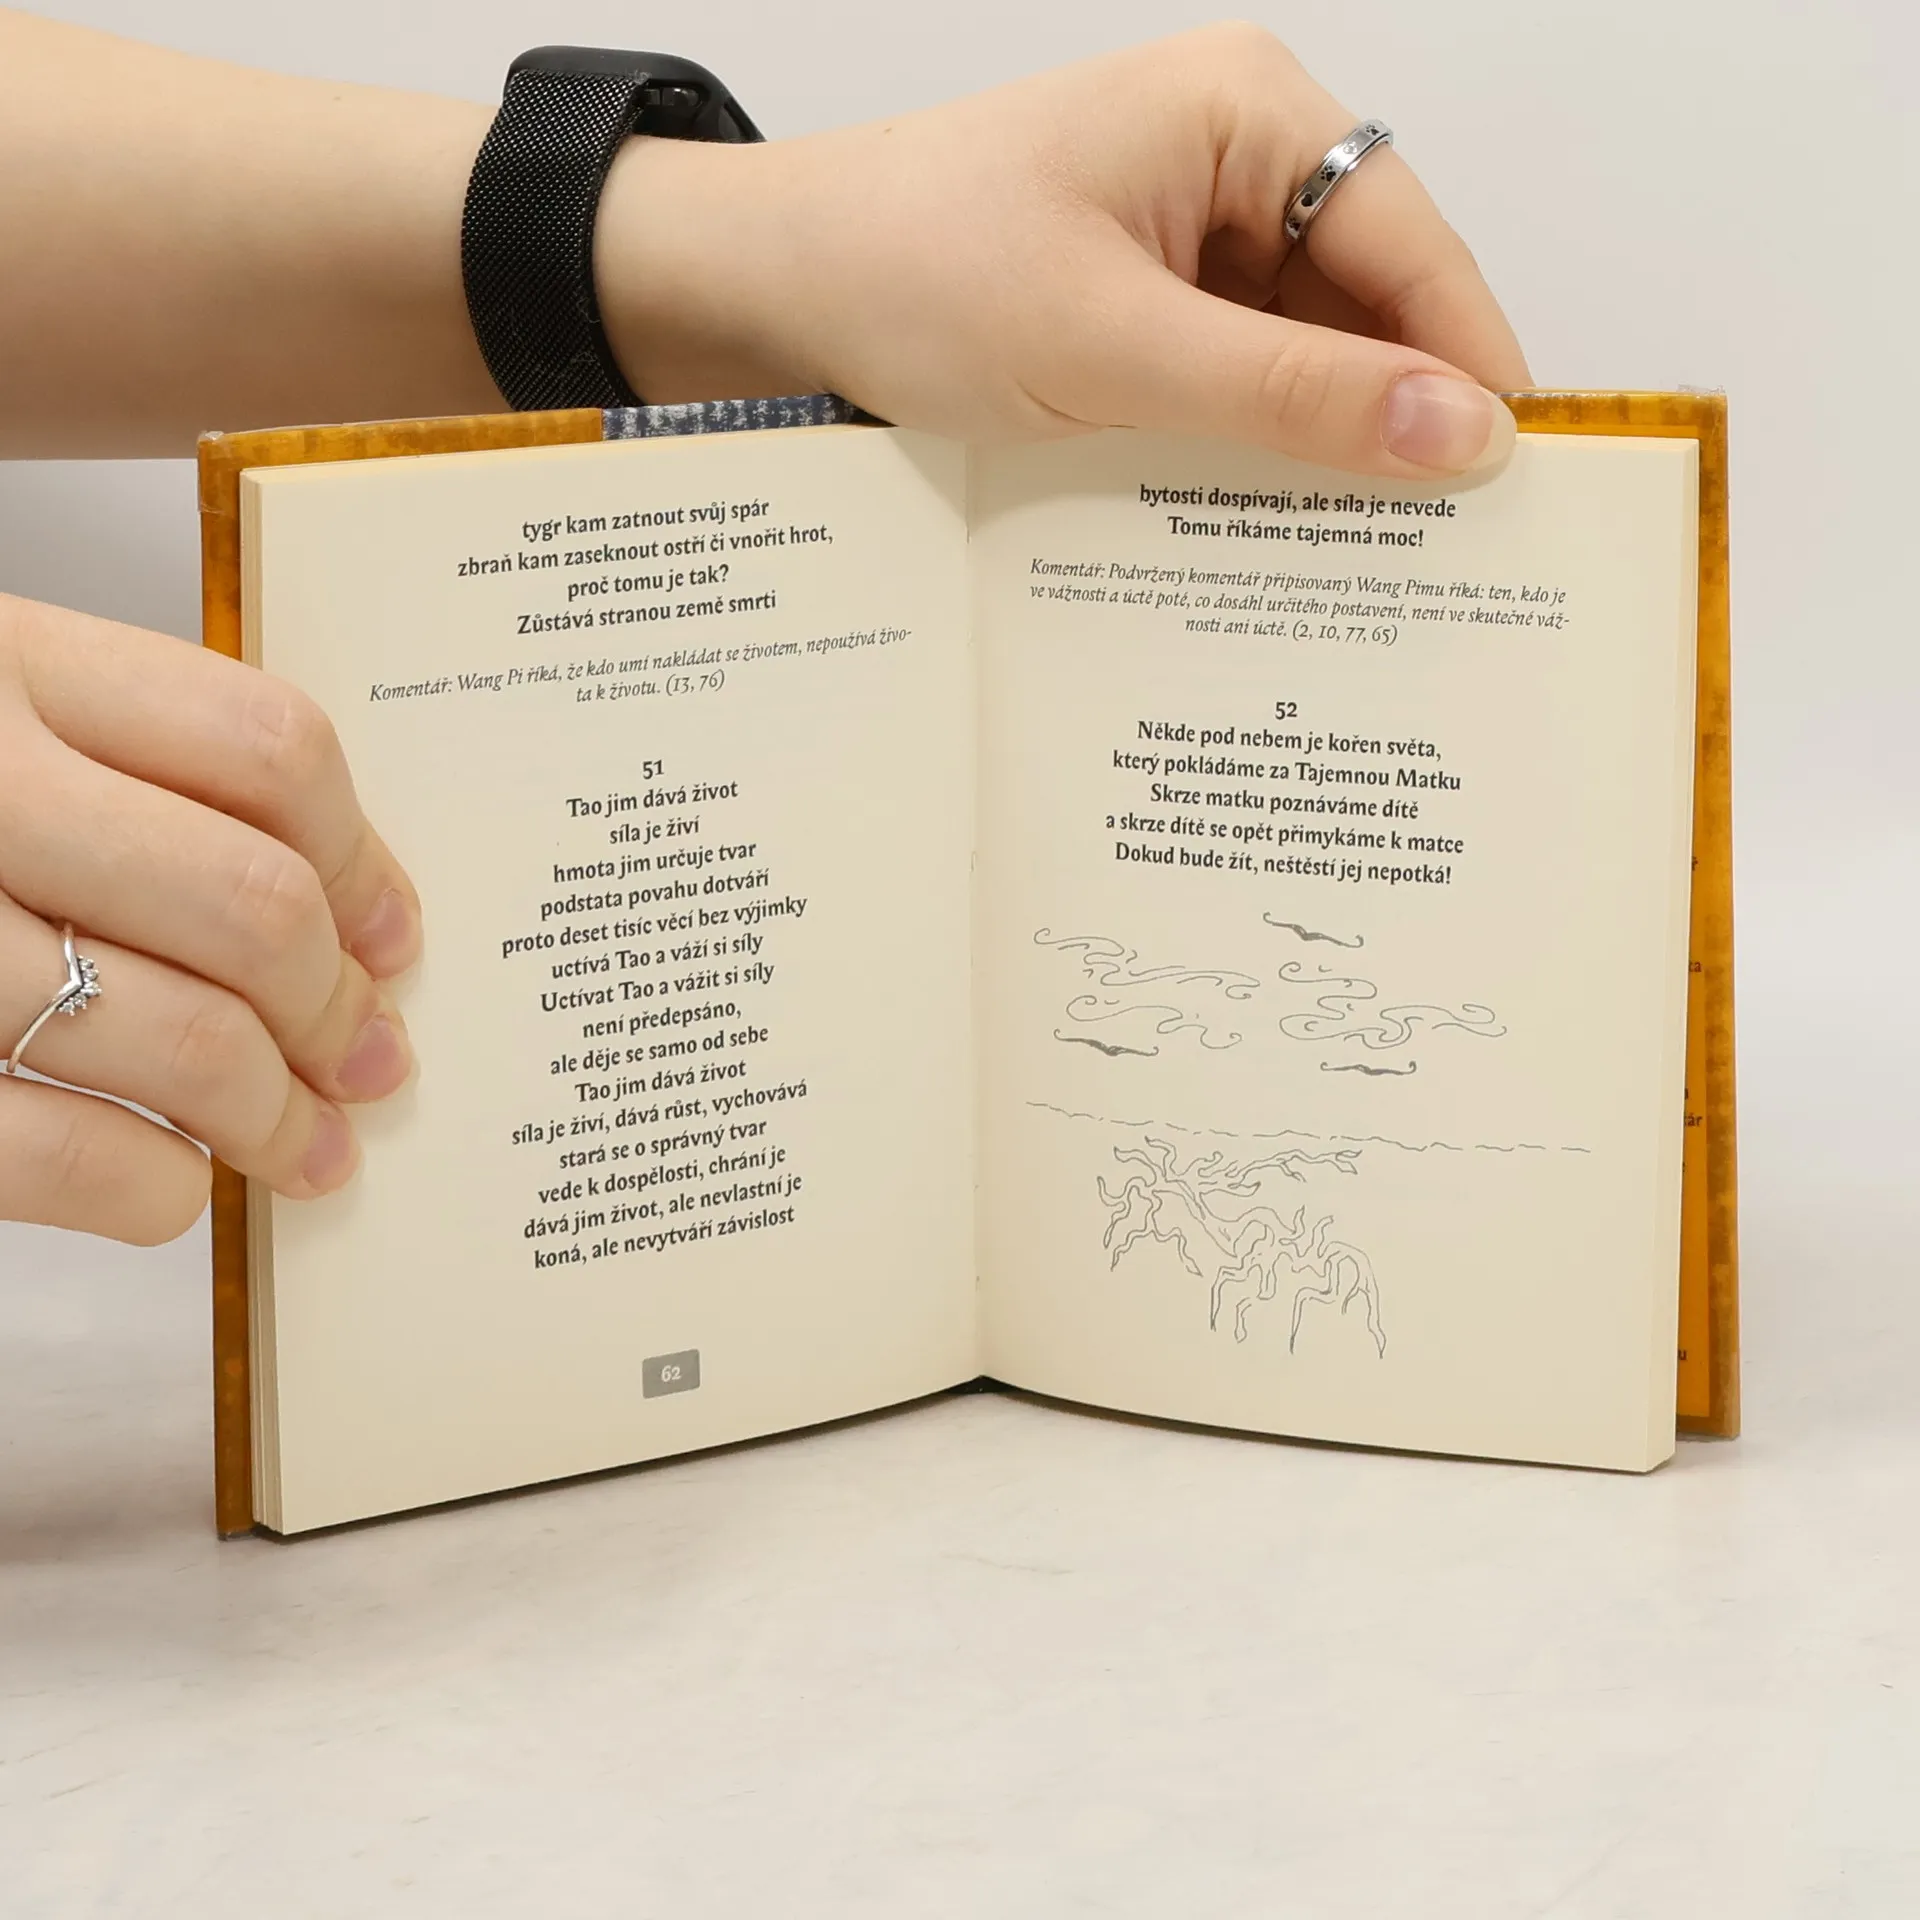 tygr kam zatnout svůj spár
zbraň kam zaseknout ostří či vnořit hrot,
proč tomu je tak?
Zůstává stranou země smrti
Komentář: Wang Pi říká, že kdo umí nakládat se životem, nepoužívá živo-
ta k životu. (13, 76)
51
Tao jim dává život
síla je živí
hmota jim určuje tvar
podstata povahu dotváří
proto deset tisíc věcí bez výjimky
uctívá Tao a váží si síly
Uctívat Tao a vážit si síly
není předepsáno,
ale děje se samo od sebe
Tao jim dává život
síla je živí, dává růst, vychovává
stará se o správný tvar
vede k dospělosti, chrání je
dává jim život, ale nevlastní je
koná, ale nevytváří závislost
62
bytosti dospívají, ale síla je nevede
Tomu říkáme tajemná moc!
Komentář: Podvržený komentář připisovaný Wang Pimu říká: ten, kdo je
ve vážnosti a úctě poté, co dosáhl určitého postavení, není ve skutečné váž-
nosti ani úctě. (2, 10, 77, 65)
52
Někde pod nebem je kořen světa,
který pokládáme za Tajemnou Matku
Skrze matku poznáváme dítě
a skrze dítě se opět přimykáme k matce
Dokud bude žít, neštěstí jej nepotká!